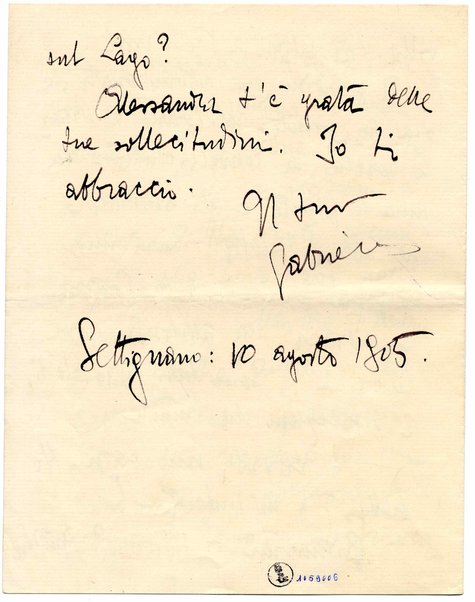 sul Lago?
Alessandra t'è grata delle
tue sollecitudini. Io ti
abbraccio.
Il tuo
Gabriele
Settignano: 10 agosto 1905.